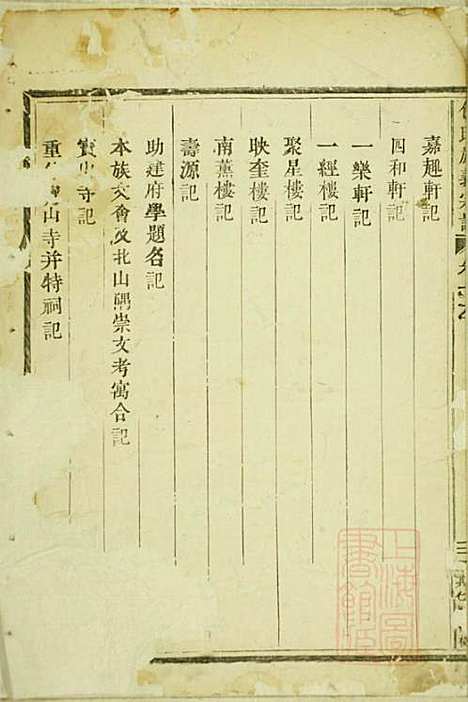 嘉趣軒記
四和軒記
一樂軒記
一經樓記
聚星樓記
映奎樓記
南薰樓記
壽源記
助建府學題名記
本族文會及北山隅崇文考寓合記
寶山寺記
重山寺并特祠記
上海圖書館藏